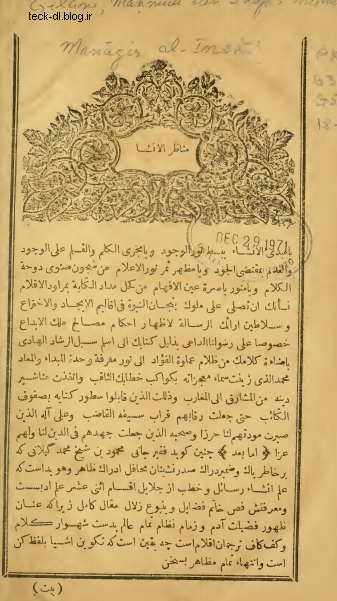 teck-dl.blog.ir
Manāẓir al-Inshā'
مناظر الانشا
DEC 29 1971
الوجود ويا مجرى الكلم والقلم على الوجود
نور الاعلام من
الكلام ويا منور باصرة عين الافهام من كحل مداد الكتابة بمراود الاقلام
نسألك ان تصلى على ملوك النبوة فى اقاليم الايجاد والاختراع
وسلاطين ارائك الرسالة لاظهار احكام مصالح ملك الابداع
خصوصا على رسولنا الداعى بدليل كتابك الى اسم سبيل الرشاد الهادى
كلامك من ظلام الفؤاد الى نور معرفة وحدة المبداء والمعاد
محمد الذى زينت سماء معجزاته بكواكب خطابك الثاقب
دينه من المشارق الى المغارب وذللت الذين قابلوا سطور كتابه بصفوف
الكتائب حتى جعلت رقابهم قراب سيفه القاضب وعلى آله الذين
صيرت مودتهم لنا حرزا وصحبه الذين جعلت جهدهم فى الدين لنا ولهم
عزا ﴿ اما بعد ﴾ چنين كويد فقير جانى محمود بن شيخ محمد كيلانى كه
بر خاطر پاك وضمير دراك صدرنشينان محافل ادراك ظاهر وهويداست كه
علم انشاء رسائل وخطب از جلايل اقسام اثنى عشر علم ادبست
ومعرفتش فص خاتم فضايل وينبوع زلال مقال كامل زيرا كه عنان
ظهور فضيلت آدم وزمام نظام تمام عالم بدست شهسوار كلام
وكف كاف ترجمان اقلام است چه يقين است كه تكوين اشيا بلفظ كن
است وانتهاء تمام مظاهر بسخن